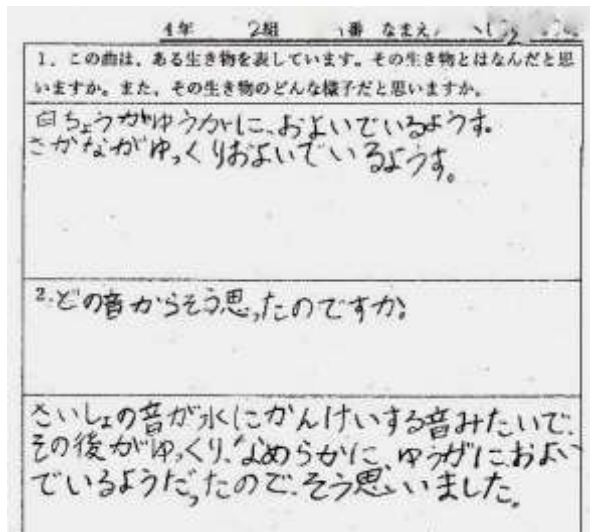 4年 2組 番 なまえ
1．この曲は、ある生き物を表しています。その生き物とはなんだと思
いますか。また、その生き物のどんな様子だと思いますか。
白ちょうがゆうがに、およいでいるようす。
さかながゆっくりおよいでいるようす。
2.どの音からそう思ったのですか。
さいしょの音が水にかんけいする音みたいで、
その後がゆっくり、なめらかに、ゆうがにおよい
でいるようだったので、そう思いました。